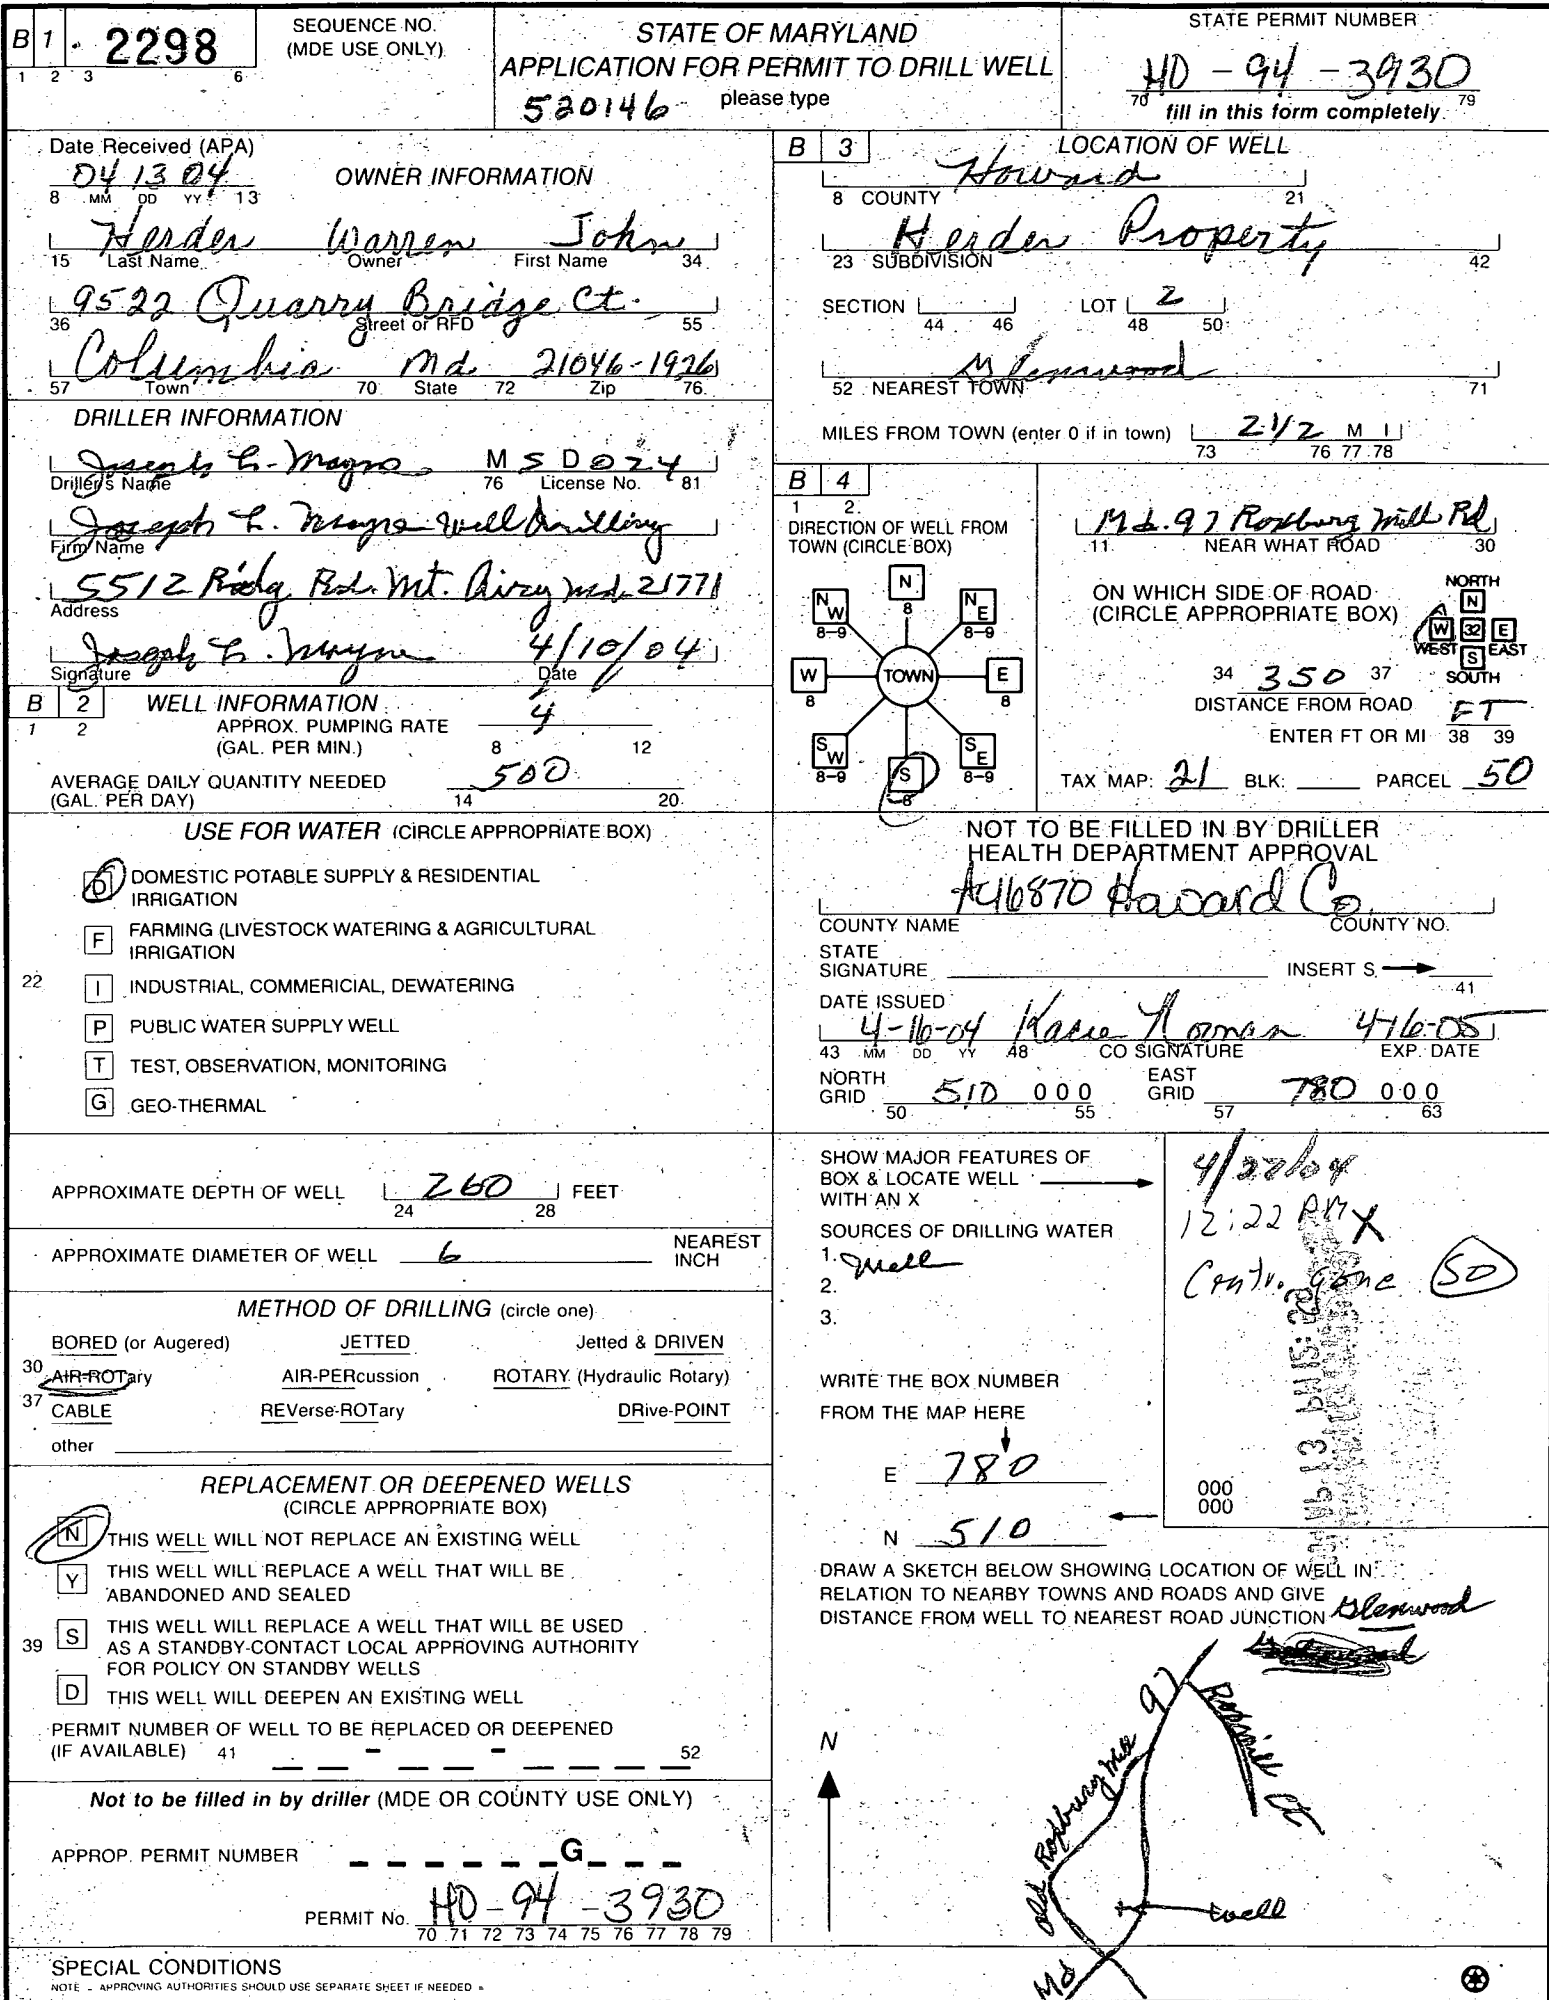 B 1 2298
1 2 3 6
SEQUENCE NO.
(MDE USE ONLY)
STATE OF MARYLAND
APPLICATION FOR PERMIT TO DRILL WELL
520146 please type
STATE PERMIT NUMBER
HO - 94 - 3930
70 79
fill in this form completely
Date Received (APA)
04 13 04
8 MM DD YY 13
OWNER INFORMATION
Herder Warren John
15 Last Name Owner First Name 34
9522 Quarry Bridge Ct.
36 Street or RFD 55
Columbia Md. 21046-1926
57 Town 70 State 72 Zip 76
DRILLER INFORMATION
Joseph L. Mayne M S D 0 2 4
Driller's Name 76 License No. 81
Joseph L. Mayne Well Drilling
Firm Name
5512 Ridg Rd. Mt. Airy Md. 21771
Address
Joseph L. Mayne 4/10/04
Signature Date
B 2 WELL INFORMATION
1 2
APPROX. PUMPING RATE 4
(GAL. PER MIN.) 8 12
AVERAGE DAILY QUANTITY NEEDED 500
(GAL. PER DAY) 14 20
USE FOR WATER (CIRCLE APPROPRIATE BOX)
D DOMESTIC POTABLE SUPPLY & RESIDENTIAL
IRRIGATION
F FARMING (LIVESTOCK WATERING & AGRICULTURAL
IRRIGATION
22 I INDUSTRIAL, COMMERICIAL, DEWATERING
P PUBLIC WATER SUPPLY WELL
T TEST, OBSERVATION, MONITORING
G GEO-THERMAL
APPROXIMATE DEPTH OF WELL 260 FEET
24 28
APPROXIMATE DIAMETER OF WELL 6 NEAREST
INCH
METHOD OF DRILLING (circle one)
BORED (or Augered) JETTED Jetted & DRIVEN
30 AIR-ROTary AIR-PERcussion ROTARY (Hydraulic Rotary)
37 CABLE REVerse-ROTary DRive-POINT
other
REPLACEMENT OR DEEPENED WELLS
(CIRCLE APPROPRIATE BOX)
N THIS WELL WILL NOT REPLACE AN EXISTING WELL
Y THIS WELL WILL REPLACE A WELL THAT WILL BE
ABANDONED AND SEALED
39 S THIS WELL WILL REPLACE A WELL THAT WILL BE USED
AS A STANDBY-CONTACT LOCAL APPROVING AUTHORITY
FOR POLICY ON STANDBY WELLS
D THIS WELL WILL DEEPEN AN EXISTING WELL
PERMIT NUMBER OF WELL TO BE REPLACED OR DEEPENED
(IF AVAILABLE) 41 - - 52
Not to be filled in by driller (MDE OR COUNTY USE ONLY)
APPROP. PERMIT NUMBER G
PERMIT No. HO - 94 - 3930
70 71 72 73 74 75 76 77 78 79
SPECIAL CONDITIONS
NOTE - APPROVING AUTHORITIES SHOULD USE SEPARATE SHEET IF NEEDED
B 3 LOCATION OF WELL
Howard
8 COUNTY 21
Herder Property
23 SUBDIVISION 42
SECTION LOT 2
44 46 48 50
Glenwood
52 NEAREST TOWN 71
MILES FROM TOWN (enter 0 if in town) 2 1/2 M I
73 76 77 78
B 4
1 2
DIRECTION OF WELL FROM
TOWN (CIRCLE BOX)
N
8
NW
8-9
NE
8-9
W
8
TOWN
E
8
SW
8-9
S
8
SE
8-9
Md. 97 Roxburg Mill Rd
11 NEAR WHAT ROAD 30
ON WHICH SIDE OF ROAD
(CIRCLE APPROPRIATE BOX)
NORTH
N
W 32 E
WEST S EAST
SOUTH
34 350 37
DISTANCE FROM ROAD FT
ENTER FT OR MI 38 39
TAX MAP: 21 BLK: PARCEL 50
NOT TO BE FILLED IN BY DRILLER
HEALTH DEPARTMENT APPROVAL
A46870 Howard Co.
COUNTY NAME COUNTY NO.
STATE
SIGNATURE INSERT S
41
DATE ISSUED
4-16-04 Kacie Noman 4-16-05
43 MM DD YY 48 CO SIGNATURE EXP. DATE
NORTH
GRID 510 000
50 55
EAST
GRID 780 000
57 63
SHOW MAJOR FEATURES OF
BOX & LOCATE WELL
WITH AN X
SOURCES OF DRILLING WATER
1. Well
2.
3.
WRITE THE BOX NUMBER
FROM THE MAP HERE
E 780
N 510
4/22/04
12:22 PM X
Contr. gone SO
000
000
DRAW A SKETCH BELOW SHOWING LOCATION OF WELL IN
RELATION TO NEARBY TOWNS AND ROADS AND GIVE
DISTANCE FROM WELL TO NEAREST ROAD JUNCTION
Glenwood
N
97
Old Roxbury Mill
Md
well